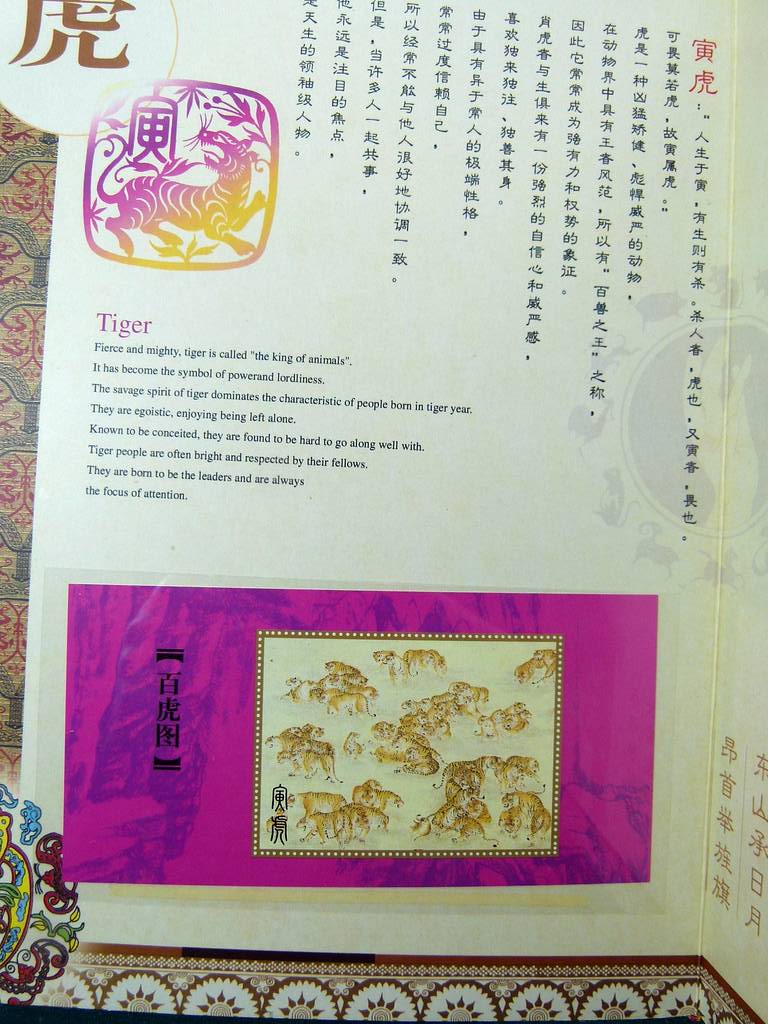 虎
寅
寅虎："人生于寅，有生则有杀。杀人者，虎也，又寅者，畏也。
可畏莫若虎，故寅属虎。"
虎是一种凶猛矫健、彪悍威严的动物，
在动物界中具有王者风范，所以有"百兽之王"之称，
因此它常常成为强有力和权势的象征。
肖虎者与生俱来有一份强烈的自信心和威严感，
喜欢独来独往、独善其身。
由于具有异于常人的极端性格，
常常过度信赖自己，
所以经常不能与他人很好地协调一致。
但是，当许多人一起共事，
他永远是注目的焦点，
是天生的领袖级人物。
Tiger
Fierce and mighty, tiger is called "the king of animals".
It has become the symbol of powerand lordliness.
The savage spirit of tiger dominates the characteristic of people born in tiger year.
They are egoistic, enjoying being left alone.
Known to be conceited, they are found to be hard to go along well with.
Tiger people are often bright and respected by their fellows.
They are born to be the leaders and are always
the focus of attention.
【百虎图】
寅虎
东山承日月
昂首举旌旗